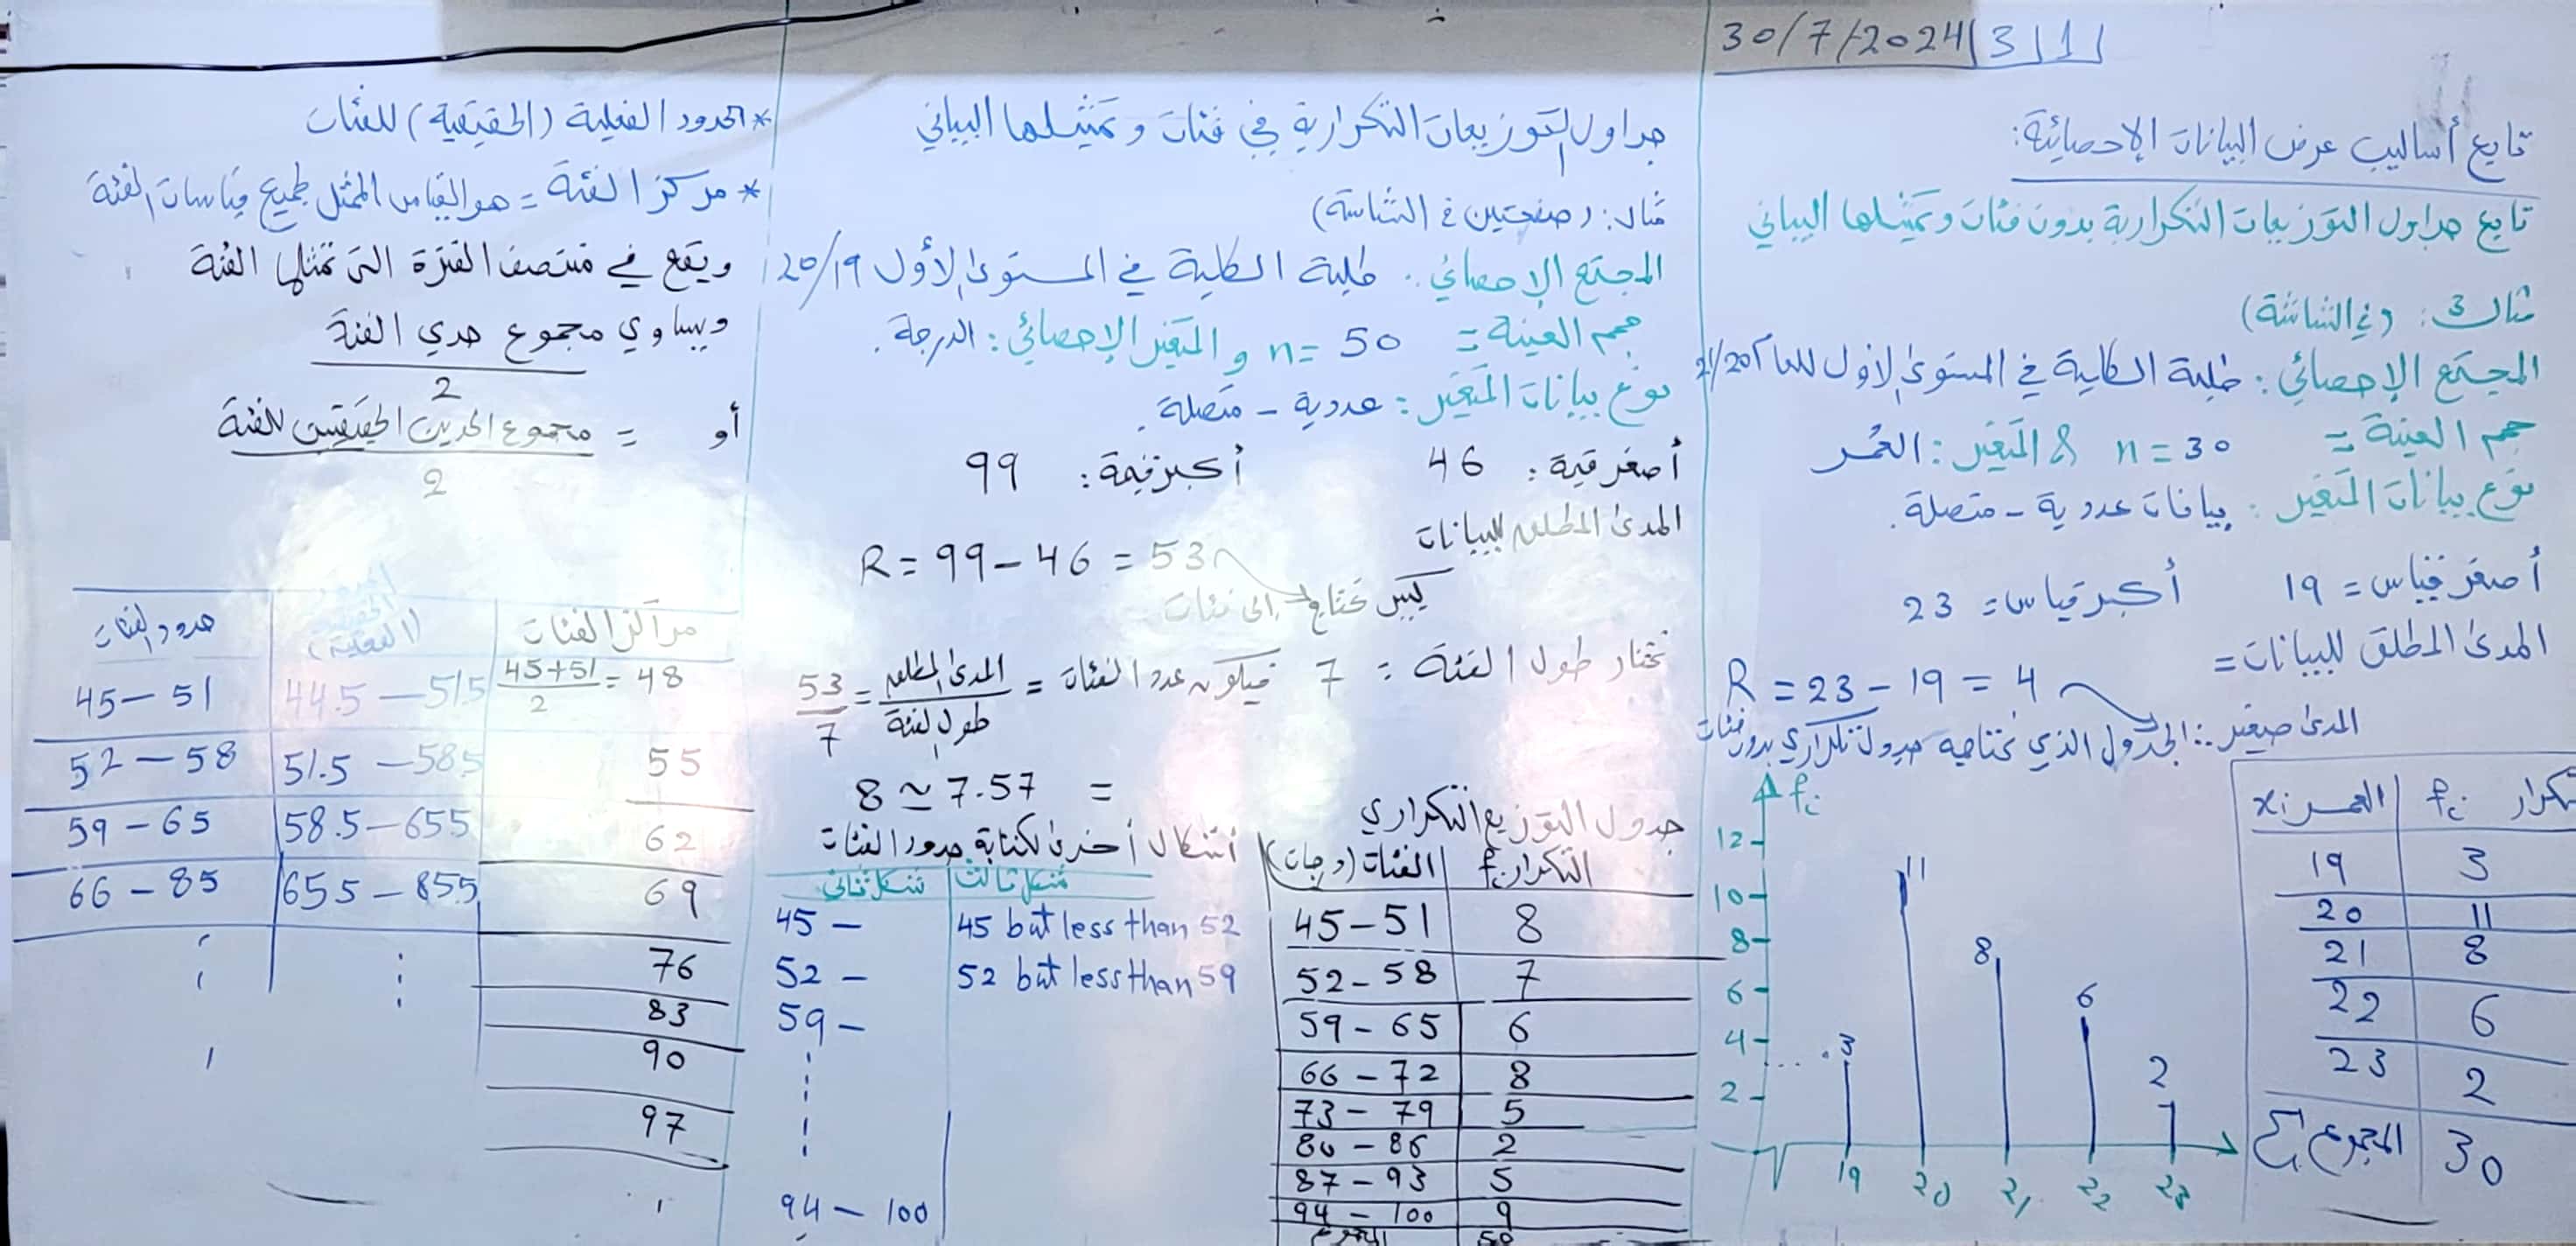 30/7/2024 | 3 | 1 |
تابع أساليب عرض البيانات الإحصائية:
تابع جداول التوزيعات التكرارية بدون فئات وتمثيلها البياني
مثال 3: (في الشاشة)
المجتمع الإحصائي: طلبة الكلية في المستوى الأول للعام 21/20
حجم العينة = n = 30 & المتغير: العُمر
نوع بيانات المتغير: بيانات عددية - متصلة.
أصغر قياس = 19 أكبر قياس = 23
المدى المطلق للبيانات =
R = 23 - 19 = 4
المدى صغير ∴ الجدول الذي نحتاجه جدول تكراري بدون فئات
العمر xi | fi تكرار
19 | 3
20 | 11
21 | 8
22 | 6
23 | 2
المجموع Σ | 30
fi
12
10
8
6
4
2
3
11
8
6
2
19 20 21 22 23
جداول التوزيعات التكرارية في فئات وتمثيلها البياني
مثال: (صفحتين في الشاشة)
المجتمع الإحصائي: طلبة الكلية في المستوى الأول 20/19
حجم العينة = n = 50 و المتغير الإحصائي: الدرجة.
نوع بيانات المتغير: عددية - متصلة.
أصغر قيمة: 46 أكبر قيمة: 99
المدى المطلق للبيانات
R = 99 - 46 = 53
كبير نحتاج إلى فئات
نختار طول الفئة = 7 فيكون عدد الفئات = المدى المطلق / طول الفئة = 53/7
= 7.57 ≃ 8
جدول التوزيع التكراري
الفئات (درجات) | التكرار fi
45 - 51 | 8
52 - 58 | 7
59 - 65 | 6
66 - 72 | 8
73 - 79 | 5
80 - 86 | 2
87 - 93 | 5
94 - 100 | 9
المجموع | 50
أشكال أخرى لكتابة حدود الفئات
شكل ثاني | شكل ثالث
45 - | 45 but less than 52
52 - | 52 but less than 59
59 -
94 - 100
* الحدود الفعلية (الحقيقية) للفئات
* مركز الفئة = هو القياس الممثل لجميع قياسات الفئة
ويقع في منتصف الفترة التي تمثلها الفئة
ويساوي مجموع حدي الفئة
2
أو = مجموع الحدين الحقيقيين للفئة
2
حدود الفئات | (الفعلية) | مراكز الفئات
45 - 51 | 44.5 - 51.5 | 45+51/2 = 48
52 - 58 | 51.5 - 585 | 55
59 - 65 | 58.5 - 655 | 62
66 - 85 | 655 - 855 | 69
76
83
90
97